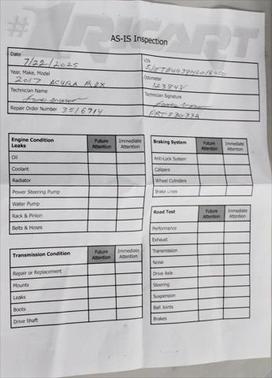 AS-IS Inspection
Date
7/22/2025
VIN
Year, Make, Model
2017 ACURA MDX
Odometer
Technician Name
Technician Signature
Repair Order Number 3516914
Engine Condition
Leaks
Future Attention
Immediate Attention
Oil
Coolant
Radiator
Power Steering Pump
Water Pump
Rack & Pinion
Belts & Hoses
Transmission Condition
Future Attention
Immediate Attention
Repair or Replacement
Mounts
Leaks
Boots
Drive Shaft
Braking System
Future Attention
Immediate Attention
Anti-Lock System
Calipers
Wheel Cylinders
Brake Lines
Road Test
Future Attention
Immediate Attention
Performance
Exhaust
Transmission
Noise
Drive Axle
Steering
Suspension
Ball Joints
Brakes